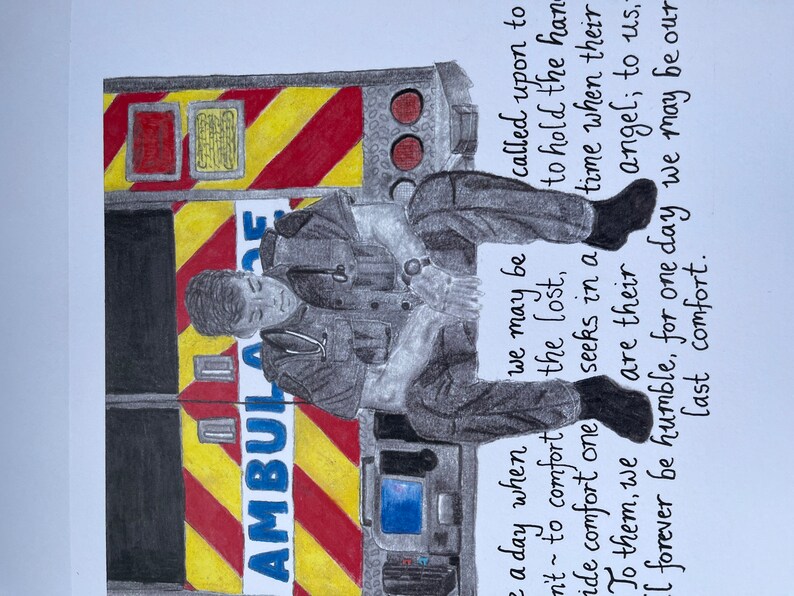 AMBULA CE
e a day when we may be called upon to
n't ~ to comfort the lost, to hold the han
ide comfort one seeks in a time when their
To them, we are their angel; to us,
ll forever be humble, for one day we may be our
last comfort.